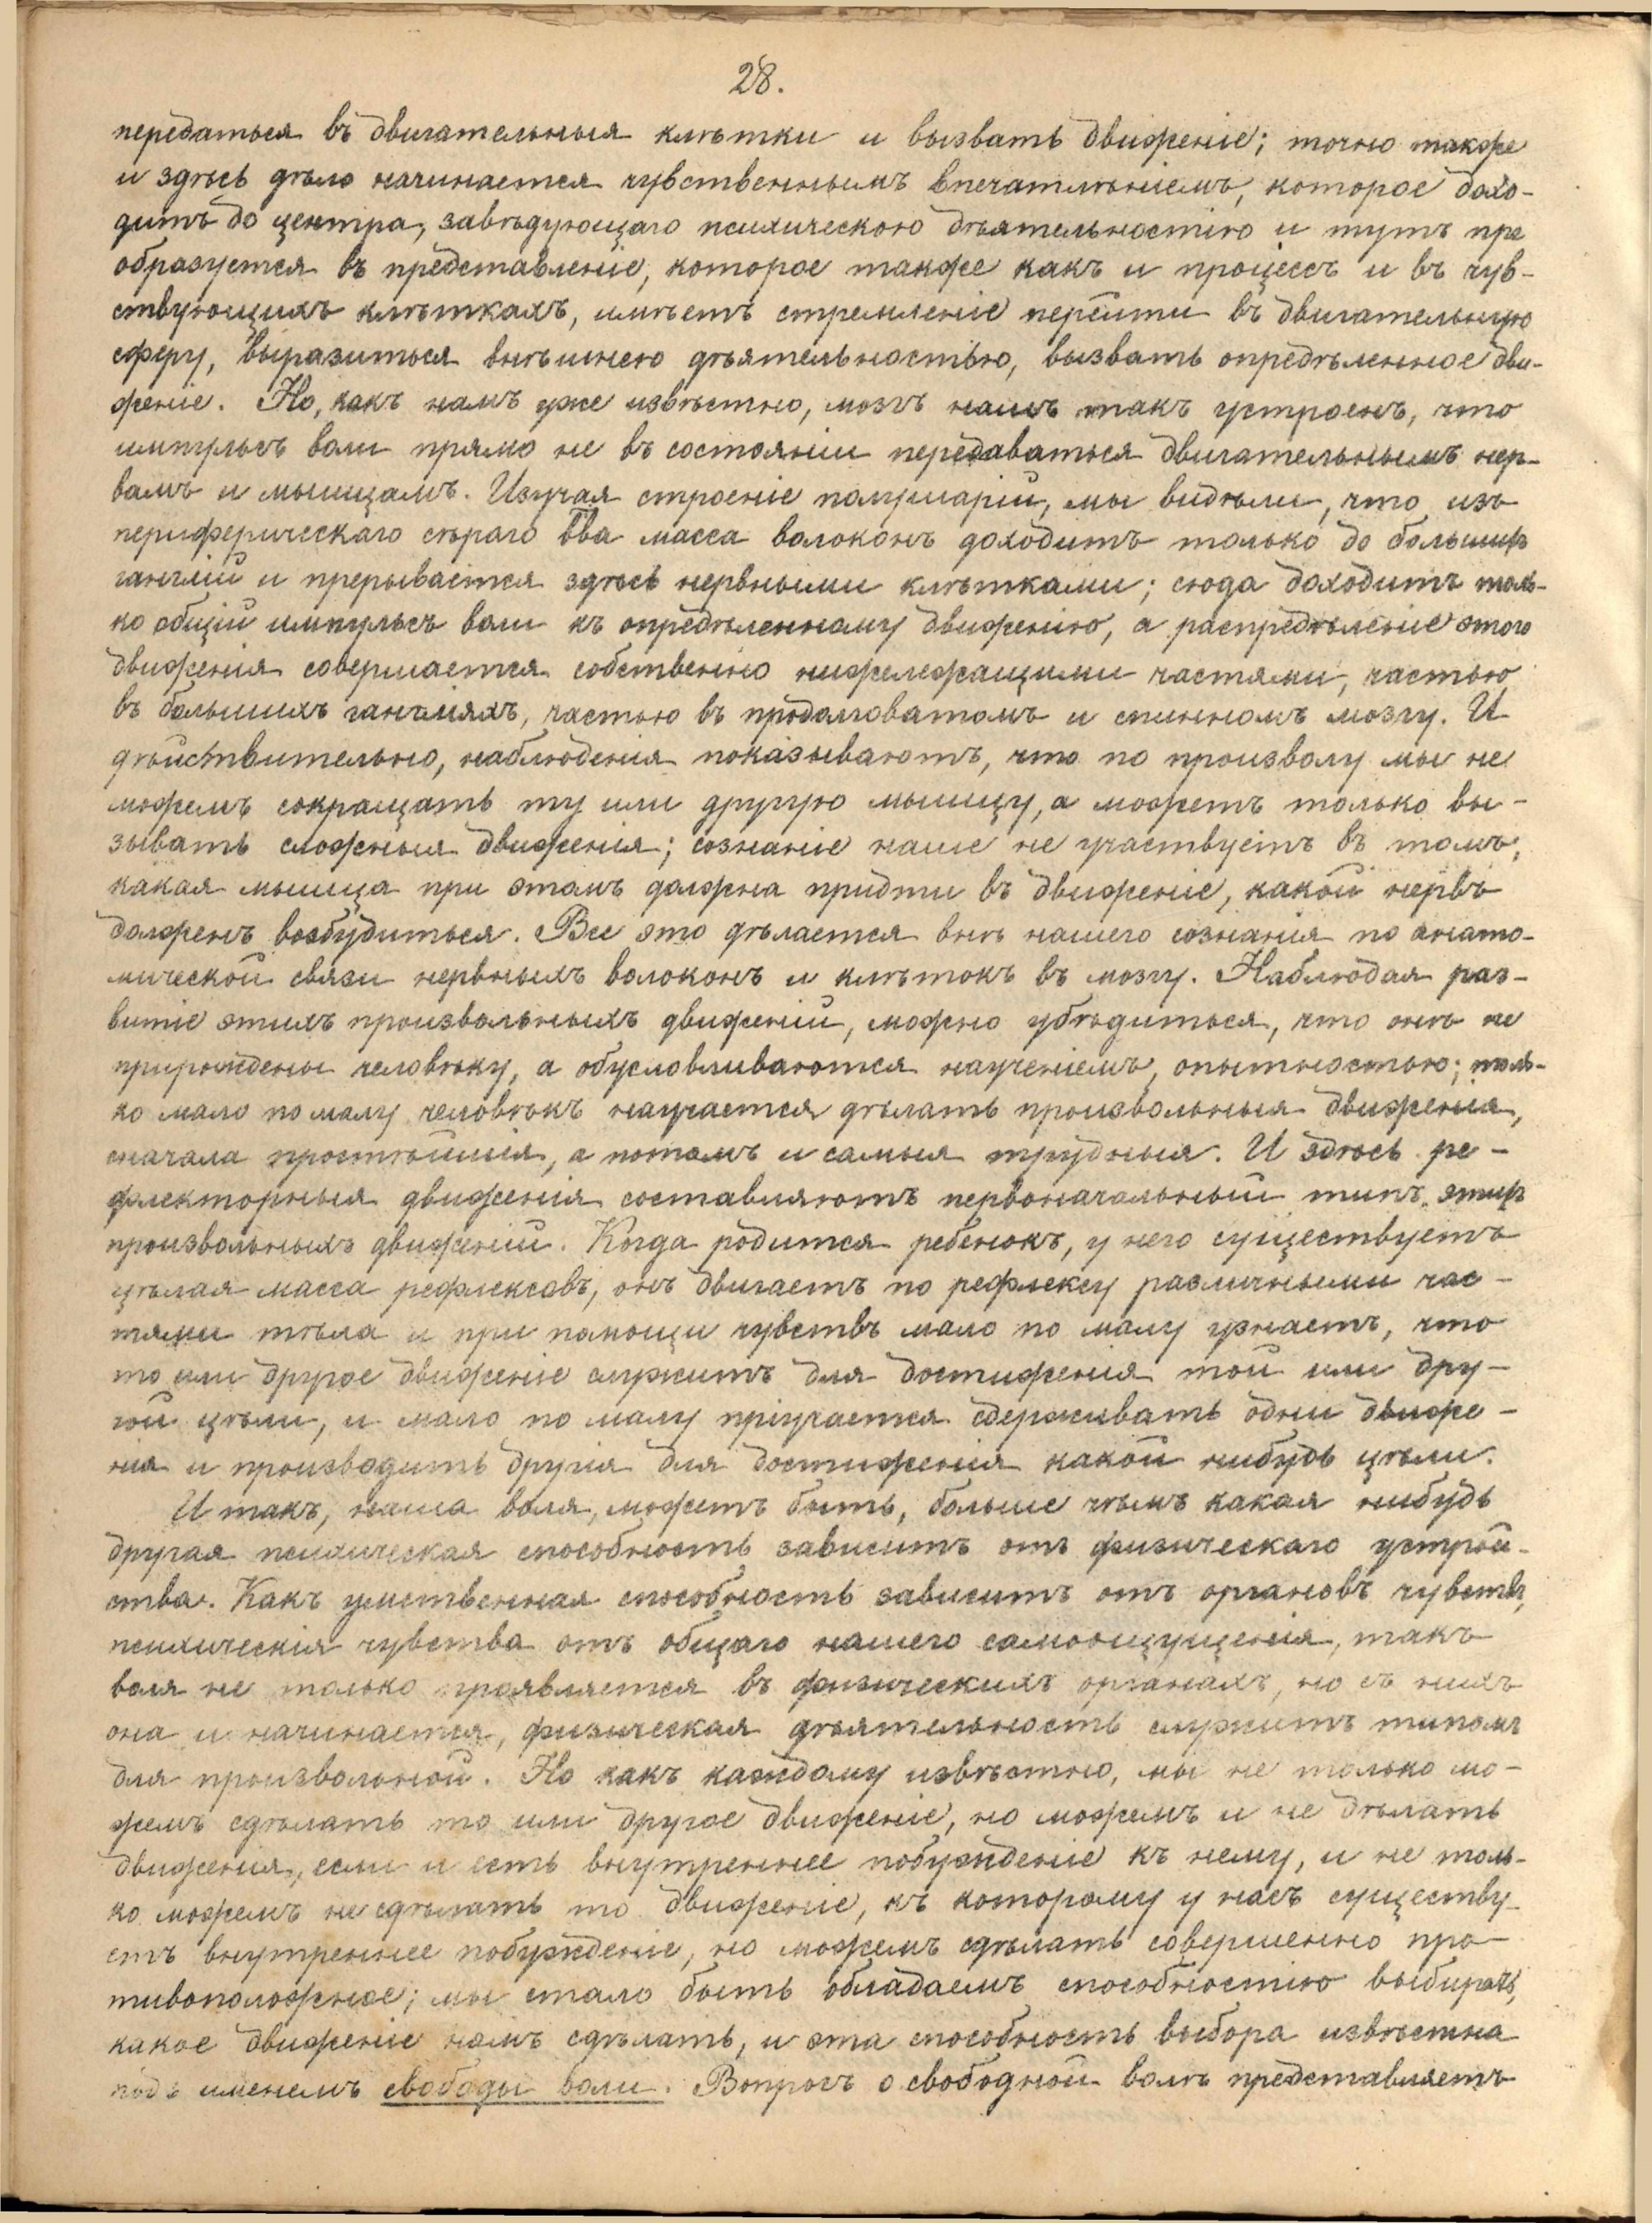 28.
передаться въ двигательныя клѣтки и вызвать движеніе; точно также
и здѣсь дѣло начинается чувственнымъ впечатлѣніемъ, которое дохо-
дитъ до центра, завѣдующаго психическою дѣятельностію и тутъ пре
образуется въ представленіе, которое также какъ и процессъ и въ чув-
ствующихъ клѣткахъ, имѣетъ стремленіе перейти въ двигательную
сферу, выразиться внѣшнею дѣятельностью, вызвать опредѣленное дви-
женіе. Но, какъ намъ уже извѣстно, мозгъ нашъ такъ устроенъ, что
импульсъ воли прямо не въ состояніи передаваться двигательнымъ нер-
вамъ и мышцамъ. Изучая строеніе полушарій, мы видѣли, что изъ
периферическаго сѣраго в̅ва масса волоконъ доходитъ только до большихъ
гангліи и прерывается здѣсь нервными клѣтками; сюда доходитъ толь-
ко общій импульсъ воли къ опредѣленному движенію, а распредѣленіе этого
движенія совершается собственно нижележащими частями, частью
въ большихъ гангліяхъ, частью въ продолговатомъ и спинномъ мозгу. И
дѣйствительно, наблюденія показываютъ, что по произволу мы не
можемъ сокращать ту или другую мышцу, а можетъ только вы-
зывать сложныя движенія; сознаніе наше не участвуетъ въ томъ,
какая мышца при этомъ должна придти въ движеніе, какой нервъ
долженъ возбудиться. Все это дѣлается внѣ нашего сознанія по анато-
мической связи нервныхъ волоконъ и клѣтокъ въ мозгу. Наблюдая раз-
витіе этихъ произвольныхъ движеній, можно убѣдиться, что онѣ не
прирождены человѣку, а обусловливаются наученіемъ, опытностью; толь-
ко мало по малу человѣкъ научается дѣлать произвольныя движенія,
сначала простѣйшія, а потомъ и самыя трудныя. И здѣсь ре-
флекторныя движенія составляютъ первоначальный типъ этихъ
произвольныхъ движеній. Когда родится ребенокъ, у него существуетъ
цѣлая масса рефлексовъ, онъ двигаетъ по рефлексу различными час-
тями тѣла и при помощи чувствъ мало по малу узнаетъ, что
то или другое движеніе служитъ для достиженія той или дру-
гой цѣли, и мало по малу пріучается сдерживать одни движе-
нія и производить другія для достиженія какой нибудь цѣли.
Итакъ, наша воля, можетъ быть, больше чѣмъ какая нибудь
другая психическая способность зависитъ отъ физическаго устрой-
ства. Какъ умственная способность зависитъ отъ органовъ чувствъ,
психическія чувства отъ общаго нашего самоощущенія, такъ
воля не только проявляется въ физическихъ органахъ, но съ нихъ
она и начинается, физическая дѣятельность служитъ типомъ
для произвольной. Но какъ каждому извѣстно, мы не только мо-
жемъ сдѣлать то или другое движеніе, но можемъ и не дѣлать
движенія, если и есть внутреннее побужденіе къ нему, и не толь-
ко можемъ не сдѣлать то движеніе, къ которому у насъ существу-
етъ внутреннее побужденіе, но можемъ сдѣлать совершенно про-
тивоположное; мы стало быть обладаемъ способностію выбирать,
какое движеніе намъ сдѣлать, и эта способность выбора извѣстна
подъ именемъ свободы воли. Вопросъ о свободной волѣ представляетъ